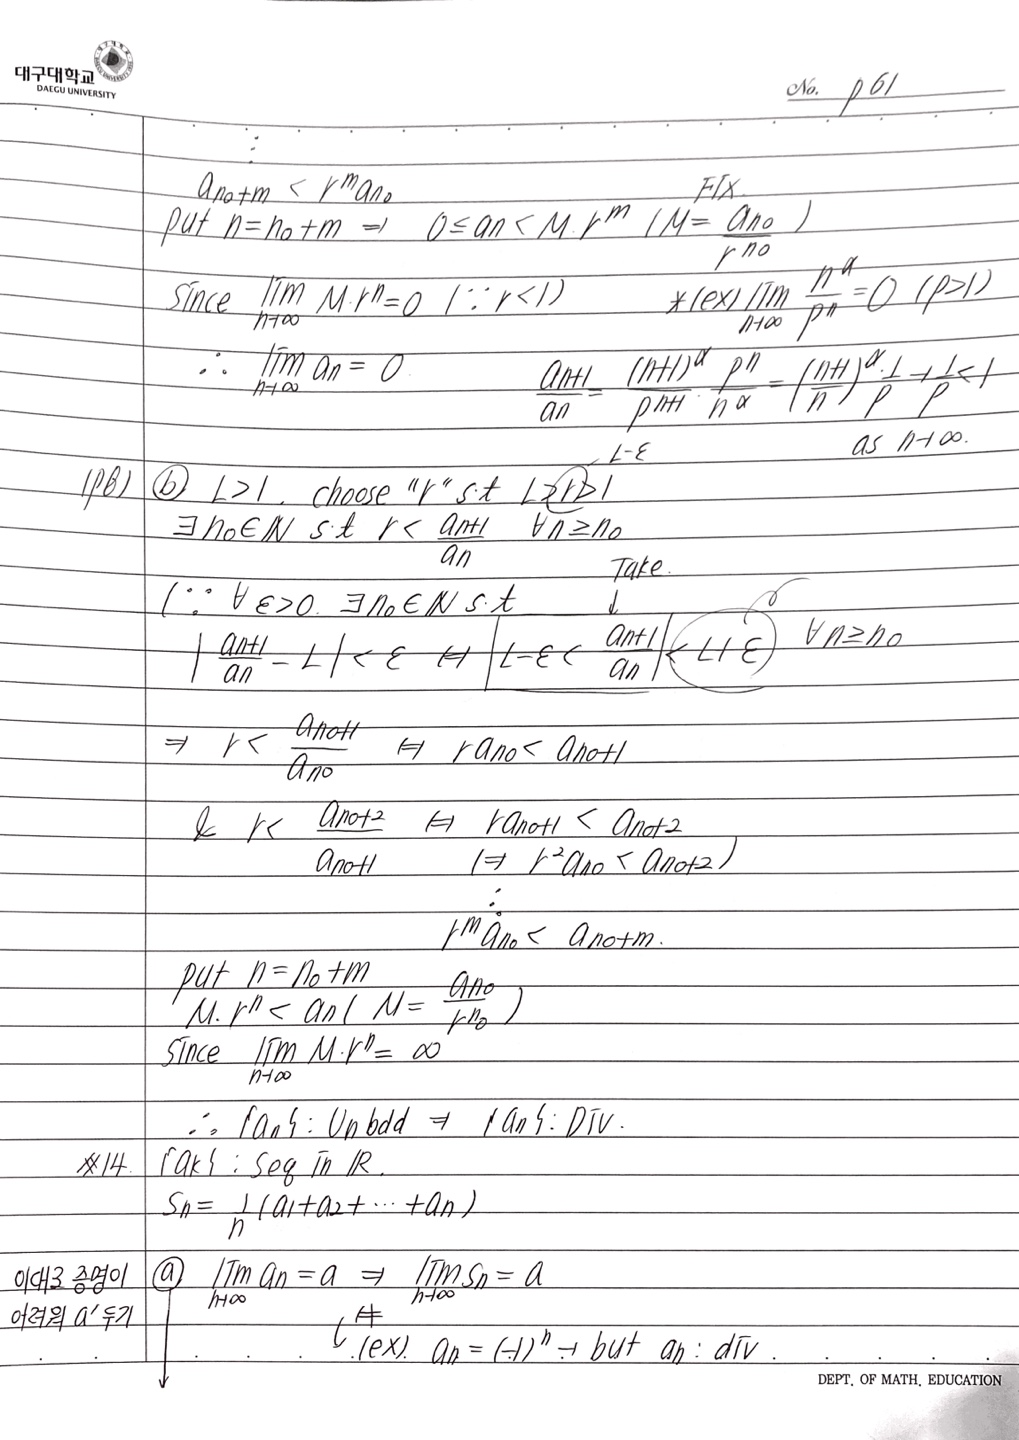 대구대학교
DAEGU UNIVERSITY
No. p61
⋮
a_{n0+m} < r^m a_{n0}
FIX.
put n=n0+m ⇒ 0≤an<M·r^m (M= a_{n0}/r^{n0})
Since lim_{n→∞} M·r^n=0 (∵r<1)
*(ex) lim_{n→∞} n^α/p^n=0 (p>1)
∴ lim_{n→∞} an = 0
a_{n+1}/an = (n+1)^α/p^{n+1} · p^n/n^α = ((n+1)/n)^α · 1/p → 1/p <1
as n→∞.
L-ε
(pB) ⓑ L>1. choose "r" s.t L>r>1
∃n0∈N s.t r< a_{n+1}/an ∀n≥n0
Take.
(∵ ∀ε>0. ∃n0∈N s.t
|a_{n+1}/an - L| < ε ⇔ L-ε < a_{n+1}/an < L+ε) ∀n≥n0
⇒ r< a_{n0+1}/a_{n0} ⇔ ra_{n0}< a_{n0+1}
& r< a_{n0+2}/a_{n0+1} ⇔ ra_{n0+1} < a_{n0+2}
(⇒ r²a_{n0} < a_{n0+2})
⋮
r^m a_{n0} < a_{n0+m}.
put n=n0+m
M·r^n < an ( M= a_{n0}/r^{n0} )
Since lim_{n→∞} M·r^n= ∞
∴ {an}: Unbdd ⇒ {an}: Div.
#14. {ak}: seq in ℝ.
Sn= 1/n (a1+a2+···+an)
이대로 증명이 ⓐ lim_{n→∞} an=a ⇒ lim_{n→∞} Sn= a
어려워 a' 두기
⇍
(ex). an = (-1)^n → but an: div.
DEPT. OF MATH. EDUCATION